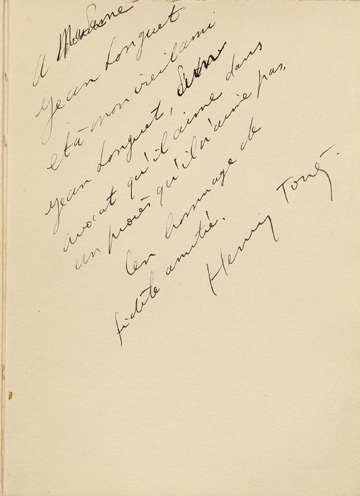 A Madame
Jean Longuet
et à mon vieil ami
Jean Longuet,
avocat qu'il aime dans
un procès qu'il n'aime pas,
en hommage de
fidèle amitié.
Henry Torrès.